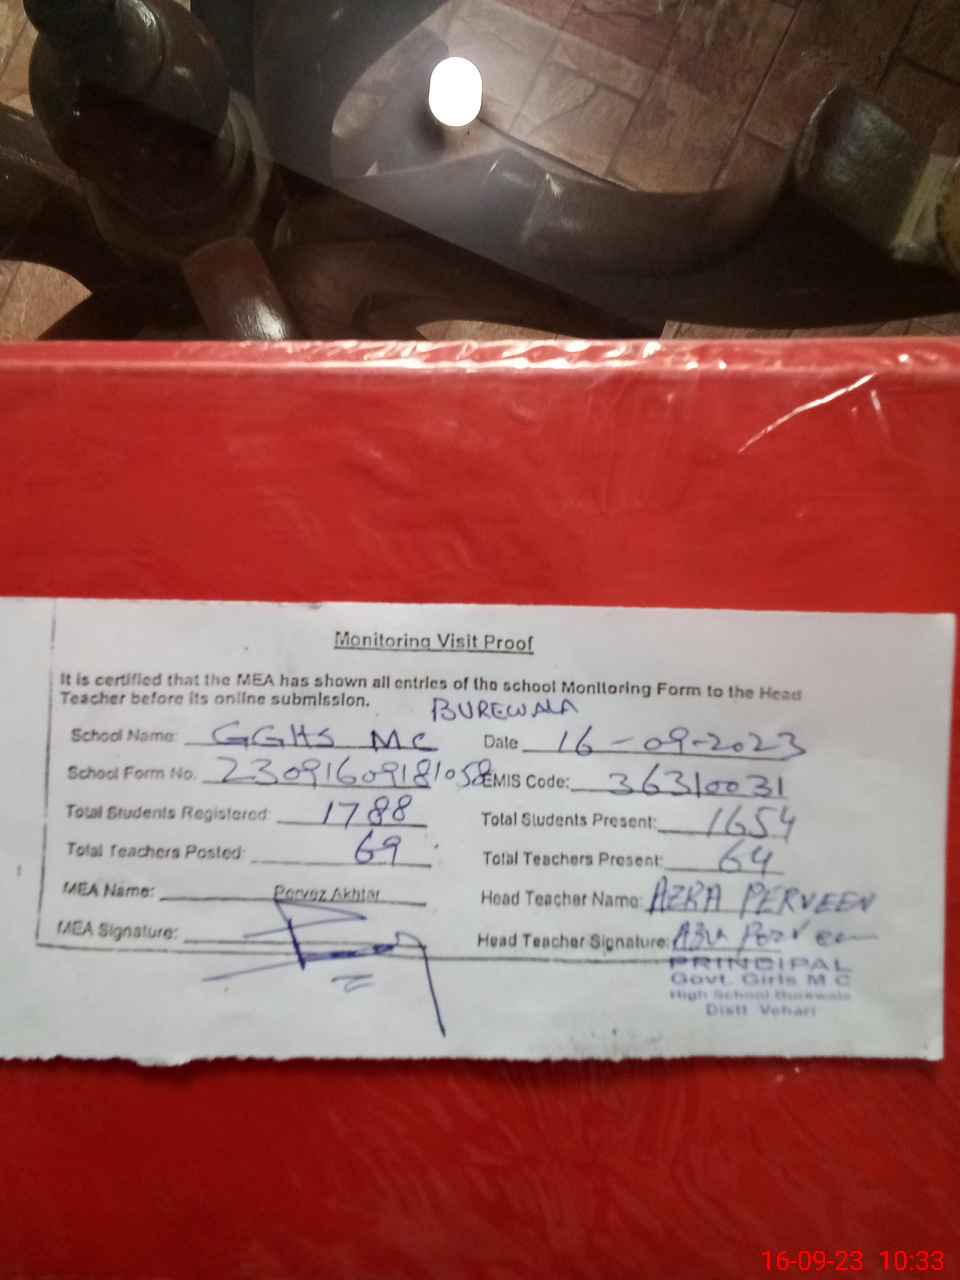 Monitoring Visit Proof
It is certified that the MEA has shown all entries of the school Monitoring Form to the Head
Teacher before its online submission.
BUREWALA
School Name: GGHS MC Date 16-09-2023
School Form No. 23091609181058 EMIS Code: 36310031
Total Students Registered: 1788 Total Students Present: 1654
Total Teachers Posted: 69 Total Teachers Present: 64
MEA Name: Pervez Akhtar Head Teacher Name: AZRA PERVEEN
MEA Signature: Head Teacher Signature: Azra Perveen
PRINCIPAL
Govt. Girls M C
High School Burewala
Distt. Vehari
16-09-23 10:33